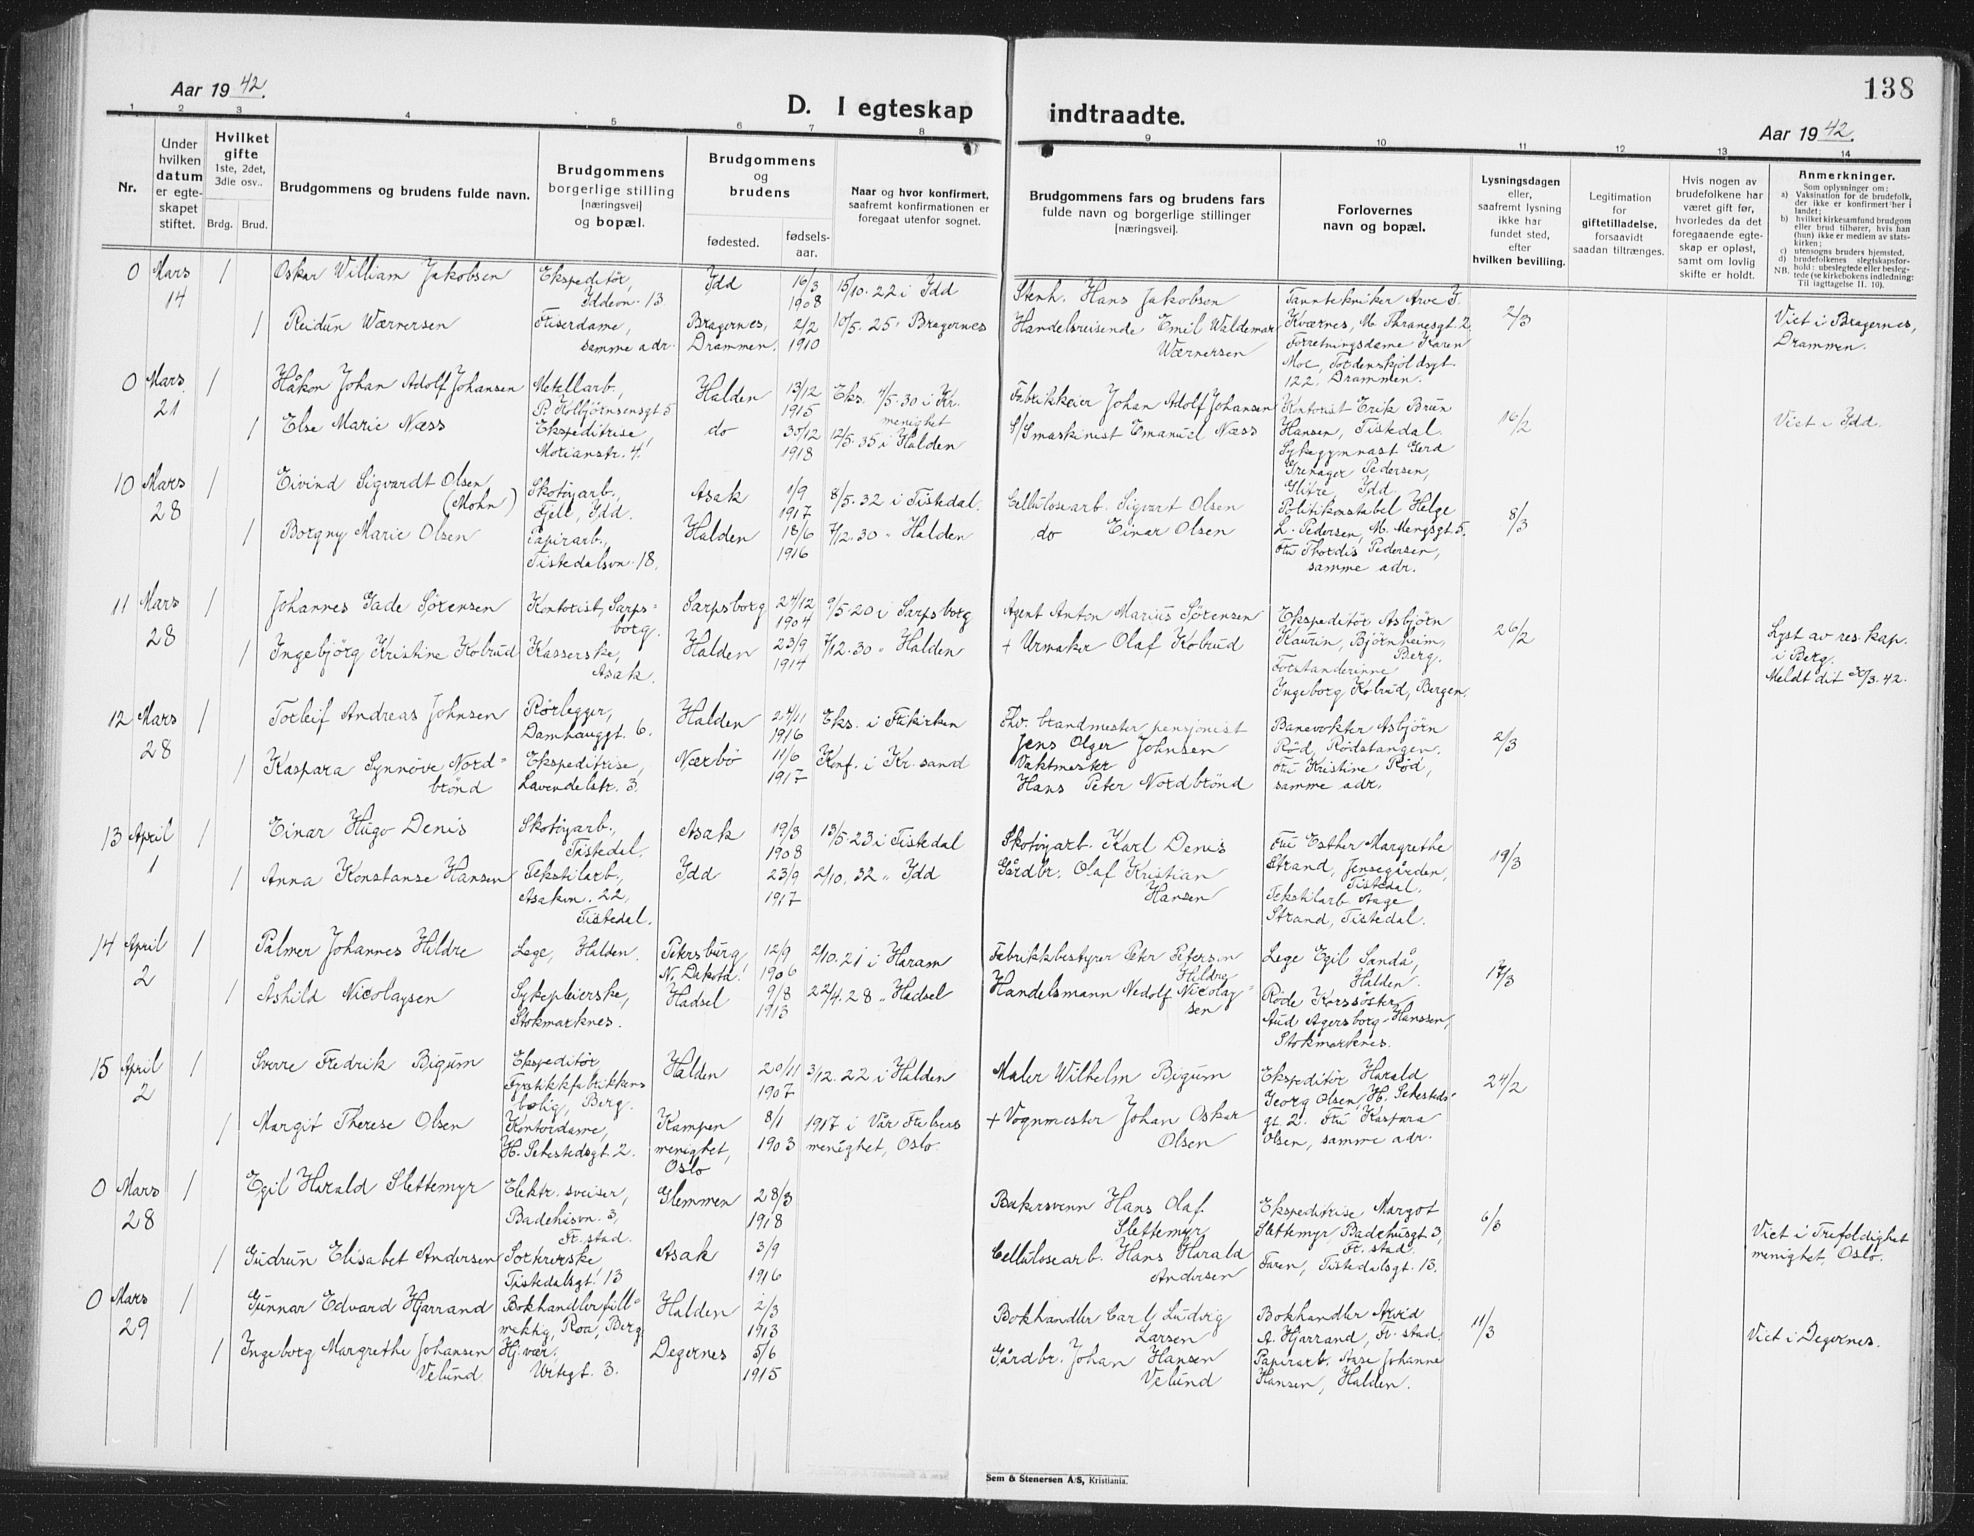 Aar 1942.
D. I egteskap indtraadte.
138
Aar 1942.
1 2 3 4 5 6 7 8 9 10 11 12 13 14
Nr.
Under hvilken datum er egteskapet stiftet.
Hvilket gifte
1ste, 2det, 3die osv..
Brdg. Brud.
Brudgommens og brudens fulde navn.
Brudgommens borgerlige stilling [næringsvei] og bopæl.
Brudgommens og brudens
fødested. fødselsaar.
Naar og hvor konfirmert, saafremt konfirmationen er foregaat utenfor sognet.
Brudgommens fars og brudens fars fulde navn og borgerlige stillinger [næringsvei].
Forlovernes navn og bopæl.
Lysningsdagen eller, saafremt lysning ikke har fundet sted, efter hvilken bevilling.
Legitimation for giftetilladelse, forsaavidt saadan tiltrænges.
Hvis nogen av brudefolkene har været gift før, hvorledes da det foregaaende egteskap er opløst, samt om lovlig skifte er holdt.
Anmerkninger.
Som oplysninger om:
a) Vaksination for de brudefolk, der ikke er konfirmert her i landet;
b) hvilket kirkesamfund brudgom eller brud tilhører, hvis han (hun) ikke er medlem av statskirken;
c) utensogns bruders hjemsted.
d) brudefolkenes slegtskapsforhold: ubeslegtede eller beslegtede (se kirkebokens indledning:
NB. Til iagttagelse II. 10).
0 Mars 14 1 Oskar William Jakobsen Ekspeditör, Iddevn. 13 Idd 16/3 1908 15/10. 22 i Idd Stenh. Hans Jakobsen Tanntekniker Arve J. Kværnes, M. Thranesgt. 2 2/3 Viet i Bragernes, Drammen.
1 Reidun Wærnersen Friserdame, samme adr. Bragernes, Drammen. 2/2 1910 10/5. 25 " Bragernes Handelsreisende Emil Waldemar Wærnersen Forretningsdame Karen Moe, Tordenskjoldsgt. 122, Drammen.
0 Mars 21 1 Håkon Johan Adolf Johansen Metallarb., P. Kolbjörnsensgt 5 Halden 13/12 1915 Eks. 4/5. 30 i Kr. menighet Fabrikkeier Johan Adolf Johansen Kontorist Erik Brun Hansen, Tistedal. 16/2 Viet i Idd.
1 Else Marie Næss Ekspeditrise, Motianstr. 4. do 30/12 1918 12/5. 35 i Halden S/S maskinist Emanuel Næss Sykegymnast Gerd Grenager Pedersen, Glitre, Idd.
10 Mars 28 1 Eivind Sigvardt Olsen (Mohn) Skotöyarb., Fjell, Idd. Asak 1/9 1917 8/5. 32 i Tistedal. Cellulosearb. Sigvart Olsen Politikonstabel Helge L. Pedersen, M. Mengsgt 5. 8/3
1 Borgny Marie Olsen Papirarb., Tistedalsvn. 18. Halden 18/6 1916 7/12. 30 " Halden do Einar Olsen Fru Thordis Pedersen, samme adr.
11 Mars 28 1 Johannes Gade Sörensen Kontorist, Sarpsborg. Sarpsborg 24/12 1904 9/5. 20 i Sarpsborg Agent Anton Marius Sörensen Ekspeditör Asbjörn Kaurin, Björnheim, Berg. 26/2 Lyst av res. kap. i Berg.
1 Ingebjörg Kristine Kolrud Kasserske, Asak. Halden 23/9 1914 7/12. 30 " Halden + Urmaker Olaf Kolrud Forstanderinne Ingeborg Kolrud, Bergen. Meldt dit 30/3. 42.
12 Mars 28 1 Torleif Andreas Johnsen Rörlegger, Damhauggt. 6. Halden 24/11 1916 Eks. i Frikirken Fhv. brandmester pensjonist Jens Olger Johnsen Banevokter Asbjörn Röd, Rödstangen. 2/3
1 Kaspara Synnöve Nordbrönd Ekspeditrise, Lavendelstr. 3. Nærbö 11/6 1917 Knf. i Kr. sand Vaktmester Hans Peter Nordbrönd Fru Kristine Röd, samme adr.
13 April 1 1 Einar Hugo Denis Skotöyarb., Tistedal. Asak 19/3 1908 13/5. 23 i Tistedal Skotöyarb. Karl Denis Fru Esther Margrethe Strand, Jensegården, Tistedal. 19/3
1 Anna Konstanse Hansen Tekstilarb., Asakvn. 22, Tistedal. Idd 23/9 1917 2/10. 32 " Idd Gårdbr. Olaf Kristian Hansen Tekstilarb. Aage Strand, Tistedal.
14 April 2 1 Palmer Johannes Hildre Lege, Halden. Petersburg, N. Dakota. 12/9 1906 2/10. 21 i Haram Fabrikkbestyrer Peter Petersen Hildre Lege Egil Sandå, Halden. 17/3
1 Åshild Nicolaysen Sykepleierske, Stokmarknes. Hadsel 9/8 1913 22/4. 28 " Hadsel Handelsmann Nedolf Nicolaysen Röde Korssöster Aud Agersborg-Hanssen, Stokmarknes.
15 April 2 1 Sverre Fredrik Bigum Ekspeditör Fyrstikkfabrikkens bolig, Berg. Halden 20/11 1907 3/12. 22 i Halden Maler Wilhelm Bigum Ekspeditör Harald Georg Olsen, H. Sehestedsgt 2. 24/2
1 Margit Therese Olsen Kontordame, H. Sehestedsgt 2. Kampen menighet, Oslo 8/1 1903 1917 i Vår Frelsers menighet, Oslo. + Vognmester Johan Oskar Olsen Fru Kaspara Olsen, samme adr.
0 Mars 28 1 Egil Harald Slettemyr Elektr. sveiser, Badehusvn. 3, Fr. stad. Glemmen 28/3 1918 Bakersvenn Hans Olaf Slettemyr Ekspeditrise Margot Slettemyr Badehusgt 3, Fr. stad. 6/3 Viet i Trefoldighet menighet, Oslo.
1 Gudrun Elisabet Andersen Sorterske, Tistedalsgt. 13 Asak 3/9 1916 Cellulosearb. Hans Harald Andersen Faren, Tistedalsgt. 13.
0 Mars 29 1 Gunnar Edvard Hjarrand Bokhandlerfullmektig, Roa, Berg Halden 2/3 1913 Bokhandler Carl Ludvig Larsen Bokhandler Arvid A. Hjarrand, Fr. stad. 11/3 Viet i Degernes.
1 Ingeborg Margrethe Johansen Velund Hj. vær. Urtegt. 3. Degernes 5/6 1915 Gårdbr. Johan Hansen Velund Papirarb. Aase Johanne Hansen, Halden.
Sem & Stenersen A/S, Kristiania.